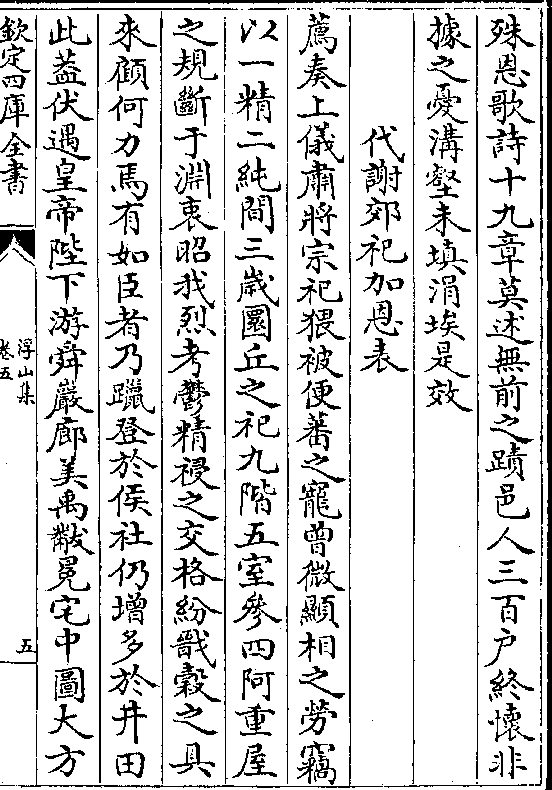 殊恩歌詩十九章莫述無前之蹟邑人三百户終懐非
據之憂溝壑未填涓埃是效
代謝郊祀加恩表
薦奏上儀肅將宗祀猥被便蕃之寵曾微顯相之勞竊
以一精二純間三歲圜丘之祀九階五室參四阿重屋
之規斷于淵衷昭我烈考鬱精祲之交格紛戩穀之具
來顧何力焉有如臣者乃躐登於侯社仍增多於井田
此蓋伏遇皇帝陛下游舜巖廊美禹黻冕宅中圖大方
欽定四庫全書
浮山集
卷五
五